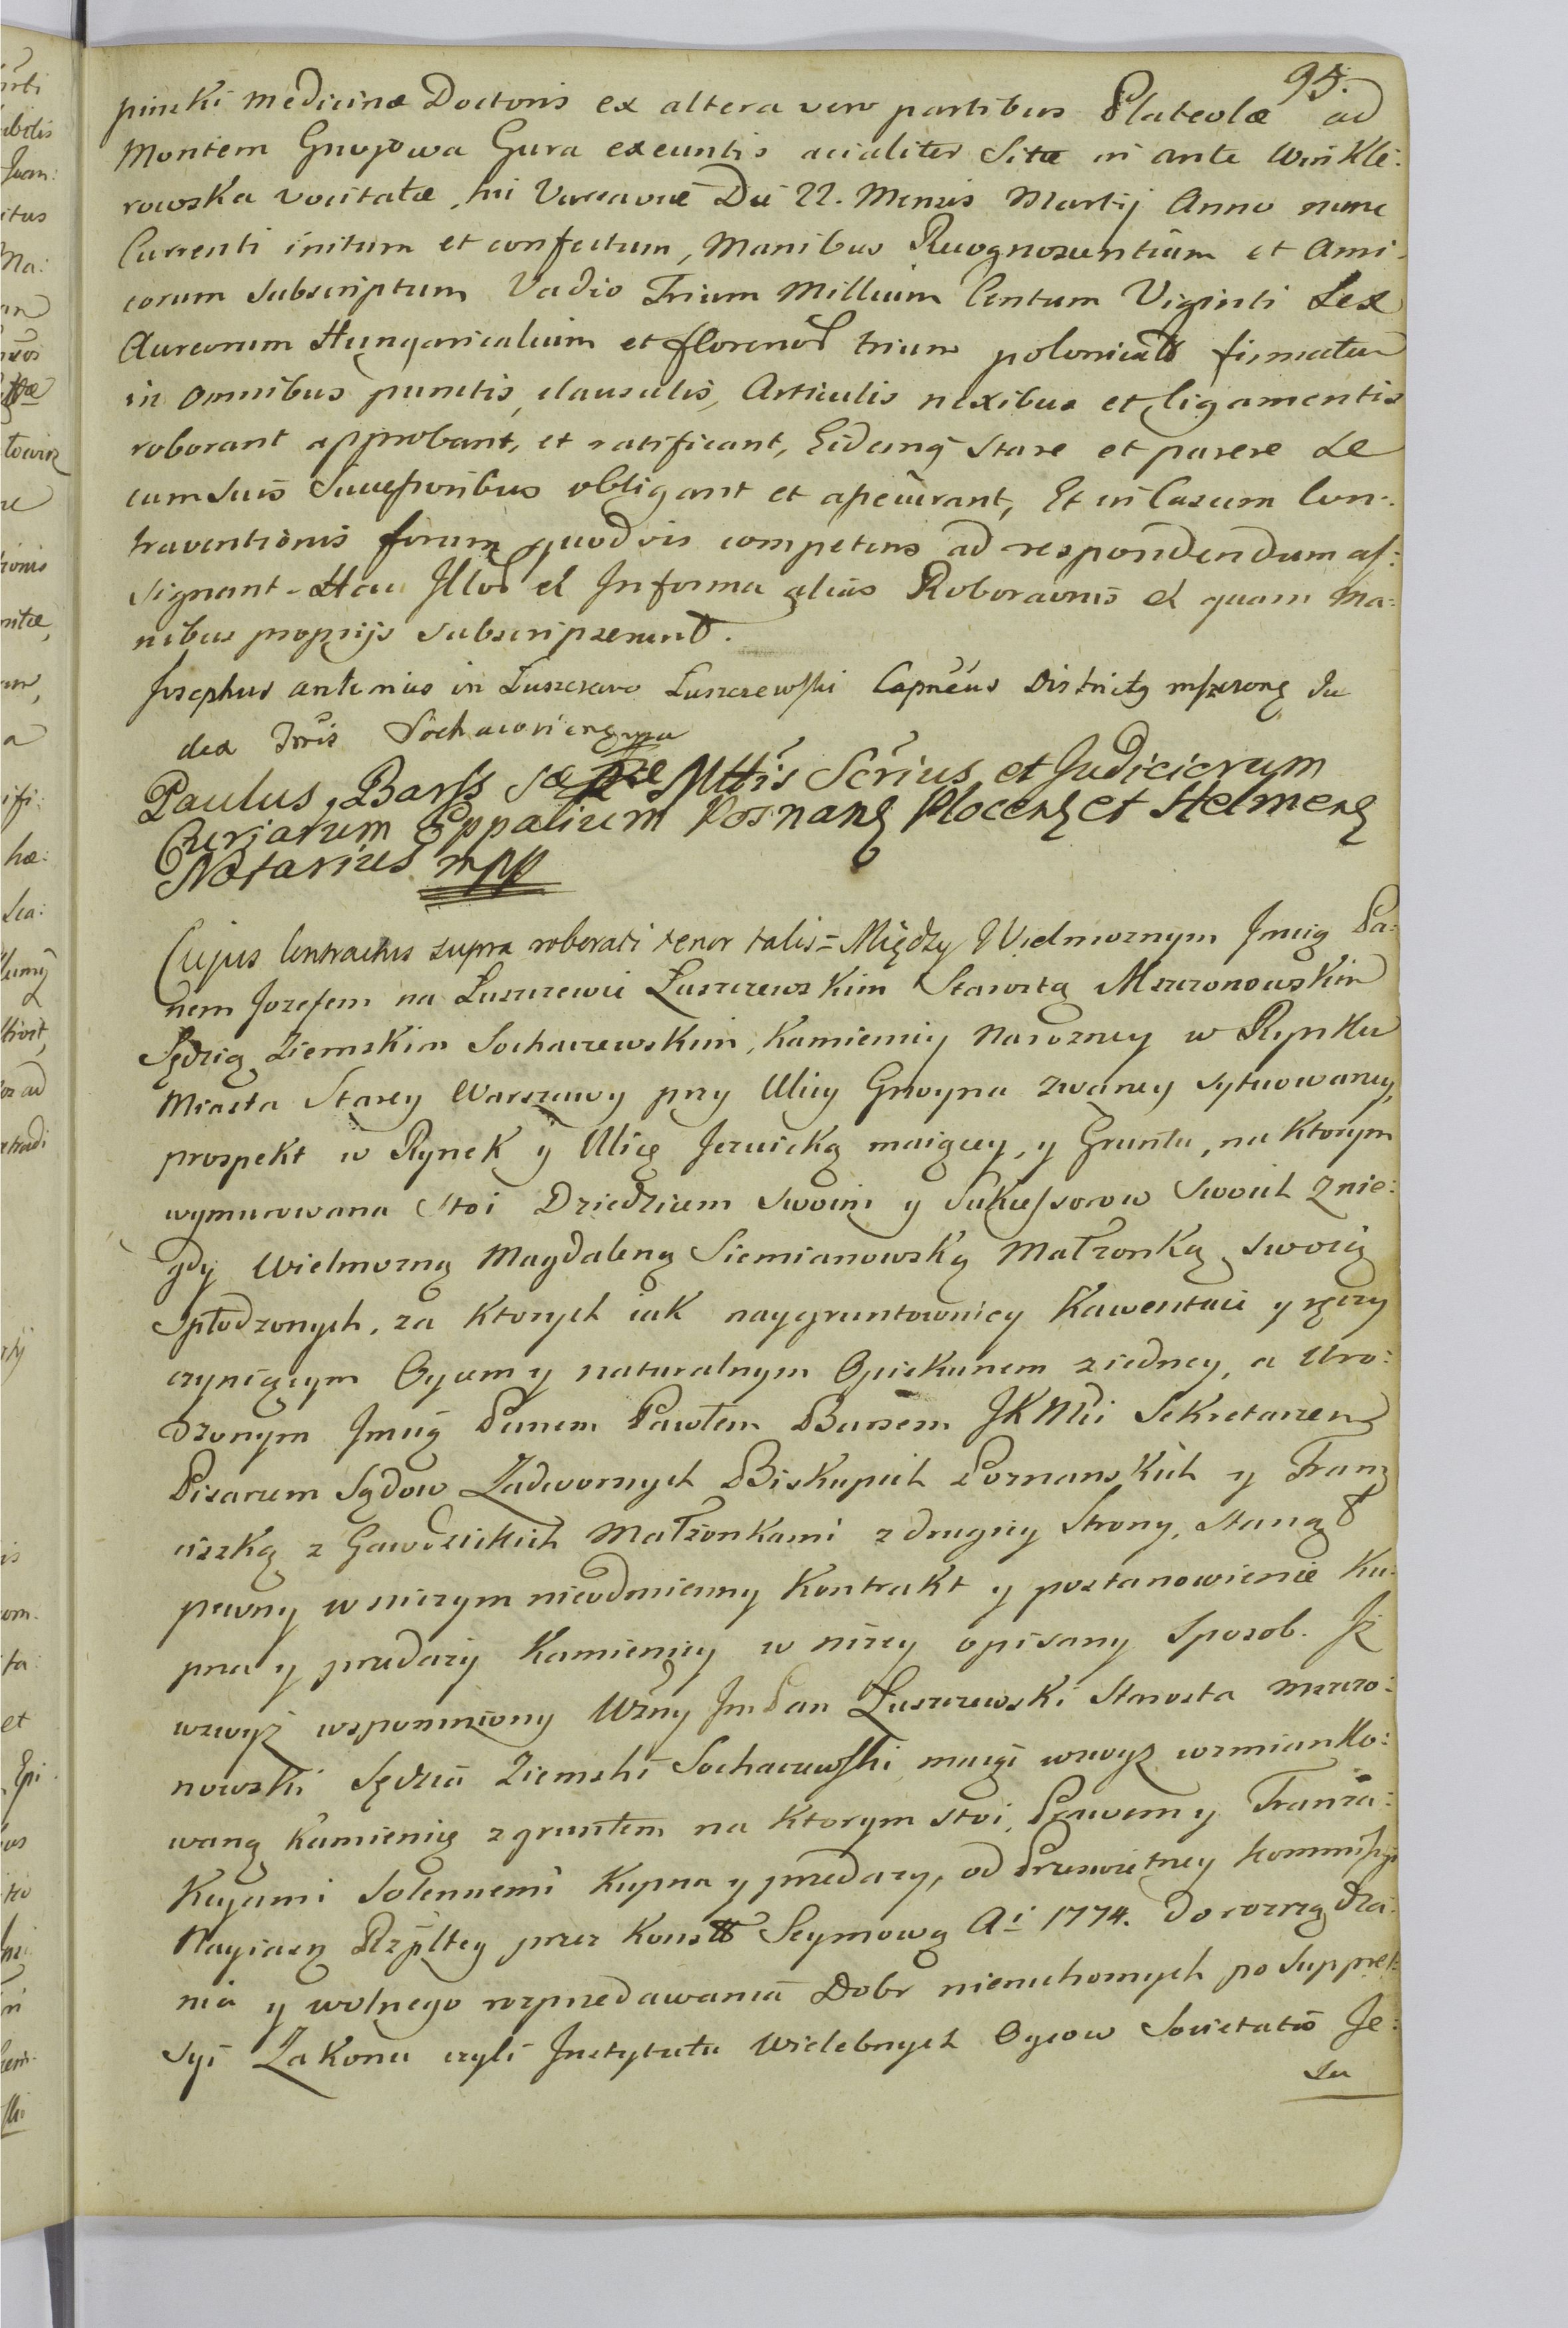 95.
pinski Medicinæ Doctoris ex altera vero partibus Plateolæ ad
Montem Gnoyowa Gura exeuntis acialiter Sitæ in ante Winkle:
rowska vocitatæ, hic Varsaviæ Die 22. Mensis Martij Anno nunc
Currenti initum et confectum, Manibus Recognoscentium et Ami-
corum Subscriptum Vadio Trium Millium Centum Viginti Sex
Aureorum Hungaricalium et florenor trium polonical firmatum
in omnibus punctis, clausulis, Articulis nexibus et ligamentis
roborant approbant, et ratificant, Eidemq Stare et parere Se
cum Suis Successoribus obligant et assecurant, Et in Casum Con-
traventionis forum quodvis competens ad respondendum as:
signant - Hac Illor et Informa alias Roboraonis et quam Ma:
nibus proprijs Subscripserunt.
Josephus antonius in Łuszczewo Łuszczewski Capneus Districtg mszczong Ju
dex Trris Sochaczovieng mpp
Paulus, Barss Sæ Ræ Mttis Scrius et Judiciorum
Curiarum Eppalium Posnang Ploceng et Helmeng
Notarius mpp
Cujus Contractus supra roborati tenor talis = Między Wielmoznym Jmcią Pa:
nem Jozefem na Łuszczewie Łuszczewskim Starostą Mszczonowskim
Sędzią Ziemskim Sochaczewskim, Kamienicy Narozney w Rynku
Miasta Starey Warszawy przy Ulicy Gnoyna zwaney sytuowaney,
prospekt w Rynek y Ulicę Jezuicką maiącey, y Gruntu, na Ktorym
wymurowana stoi Dziedzicem Swoim y Sukcessorow Swoich z nie:
gdy Wielmozną Magdaleną Siemianowską Małzonką swoią
Spłodzonych, za Ktorych iak naygruntowniey Kawentuie y ręczy
czyniącym Oycem y naturalnym Opiekunem ziedney, a Uro:
dzonym Jmcią Panem Pawłem Barsem JKMci Sekretarzem
Pisarzem Sądow Zadwornych Biskupich Poznanskich y Fran
ciszką z Gawdzickich Małżonkami z drugiey Strony, Stanął
pewny w niczym nieodmienny Kontrakt y postanowienie Ku:
pna y przedaży Kamienicy w niżey opisany Sposob. Iż
wzwyż wspomniony Wżny JmPan Łuszczewski Starosta Mszczo:
nowski Sędzia Ziemski Sochaczewski maiąc wzwyż wzmianko:
waną Kamienicę z gruntem na Ktorym stoi, Prawem y Tranza:
Kcyami Solennemi Kupna y przedazy, od Przeswietney Kommissyi
Nayiasn Rzpltey przez Konst Seymową Ai 1774. Do rozrządza:
nia y wolnego rozprzedawania Dobr nieruchomych po Suppres:
syi Zakonu czyli Instytutu Wielebnych Oycow Societatis Je:
Su